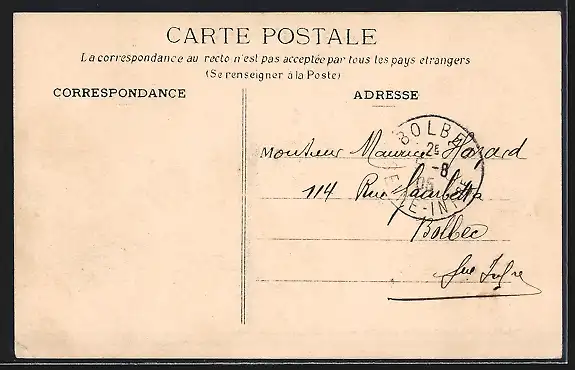 CARTE POSTALE
La correspondance au recto n'est pas acceptée par tous les pays etrangers
(Se renseigner à la Poste)
CORRESPONDANCE
ADRESSE
BOLBEC
2E
-8
05
INF
Monsieur Maurice
114 Rue Gambetta
Bolbec
Sne Infre